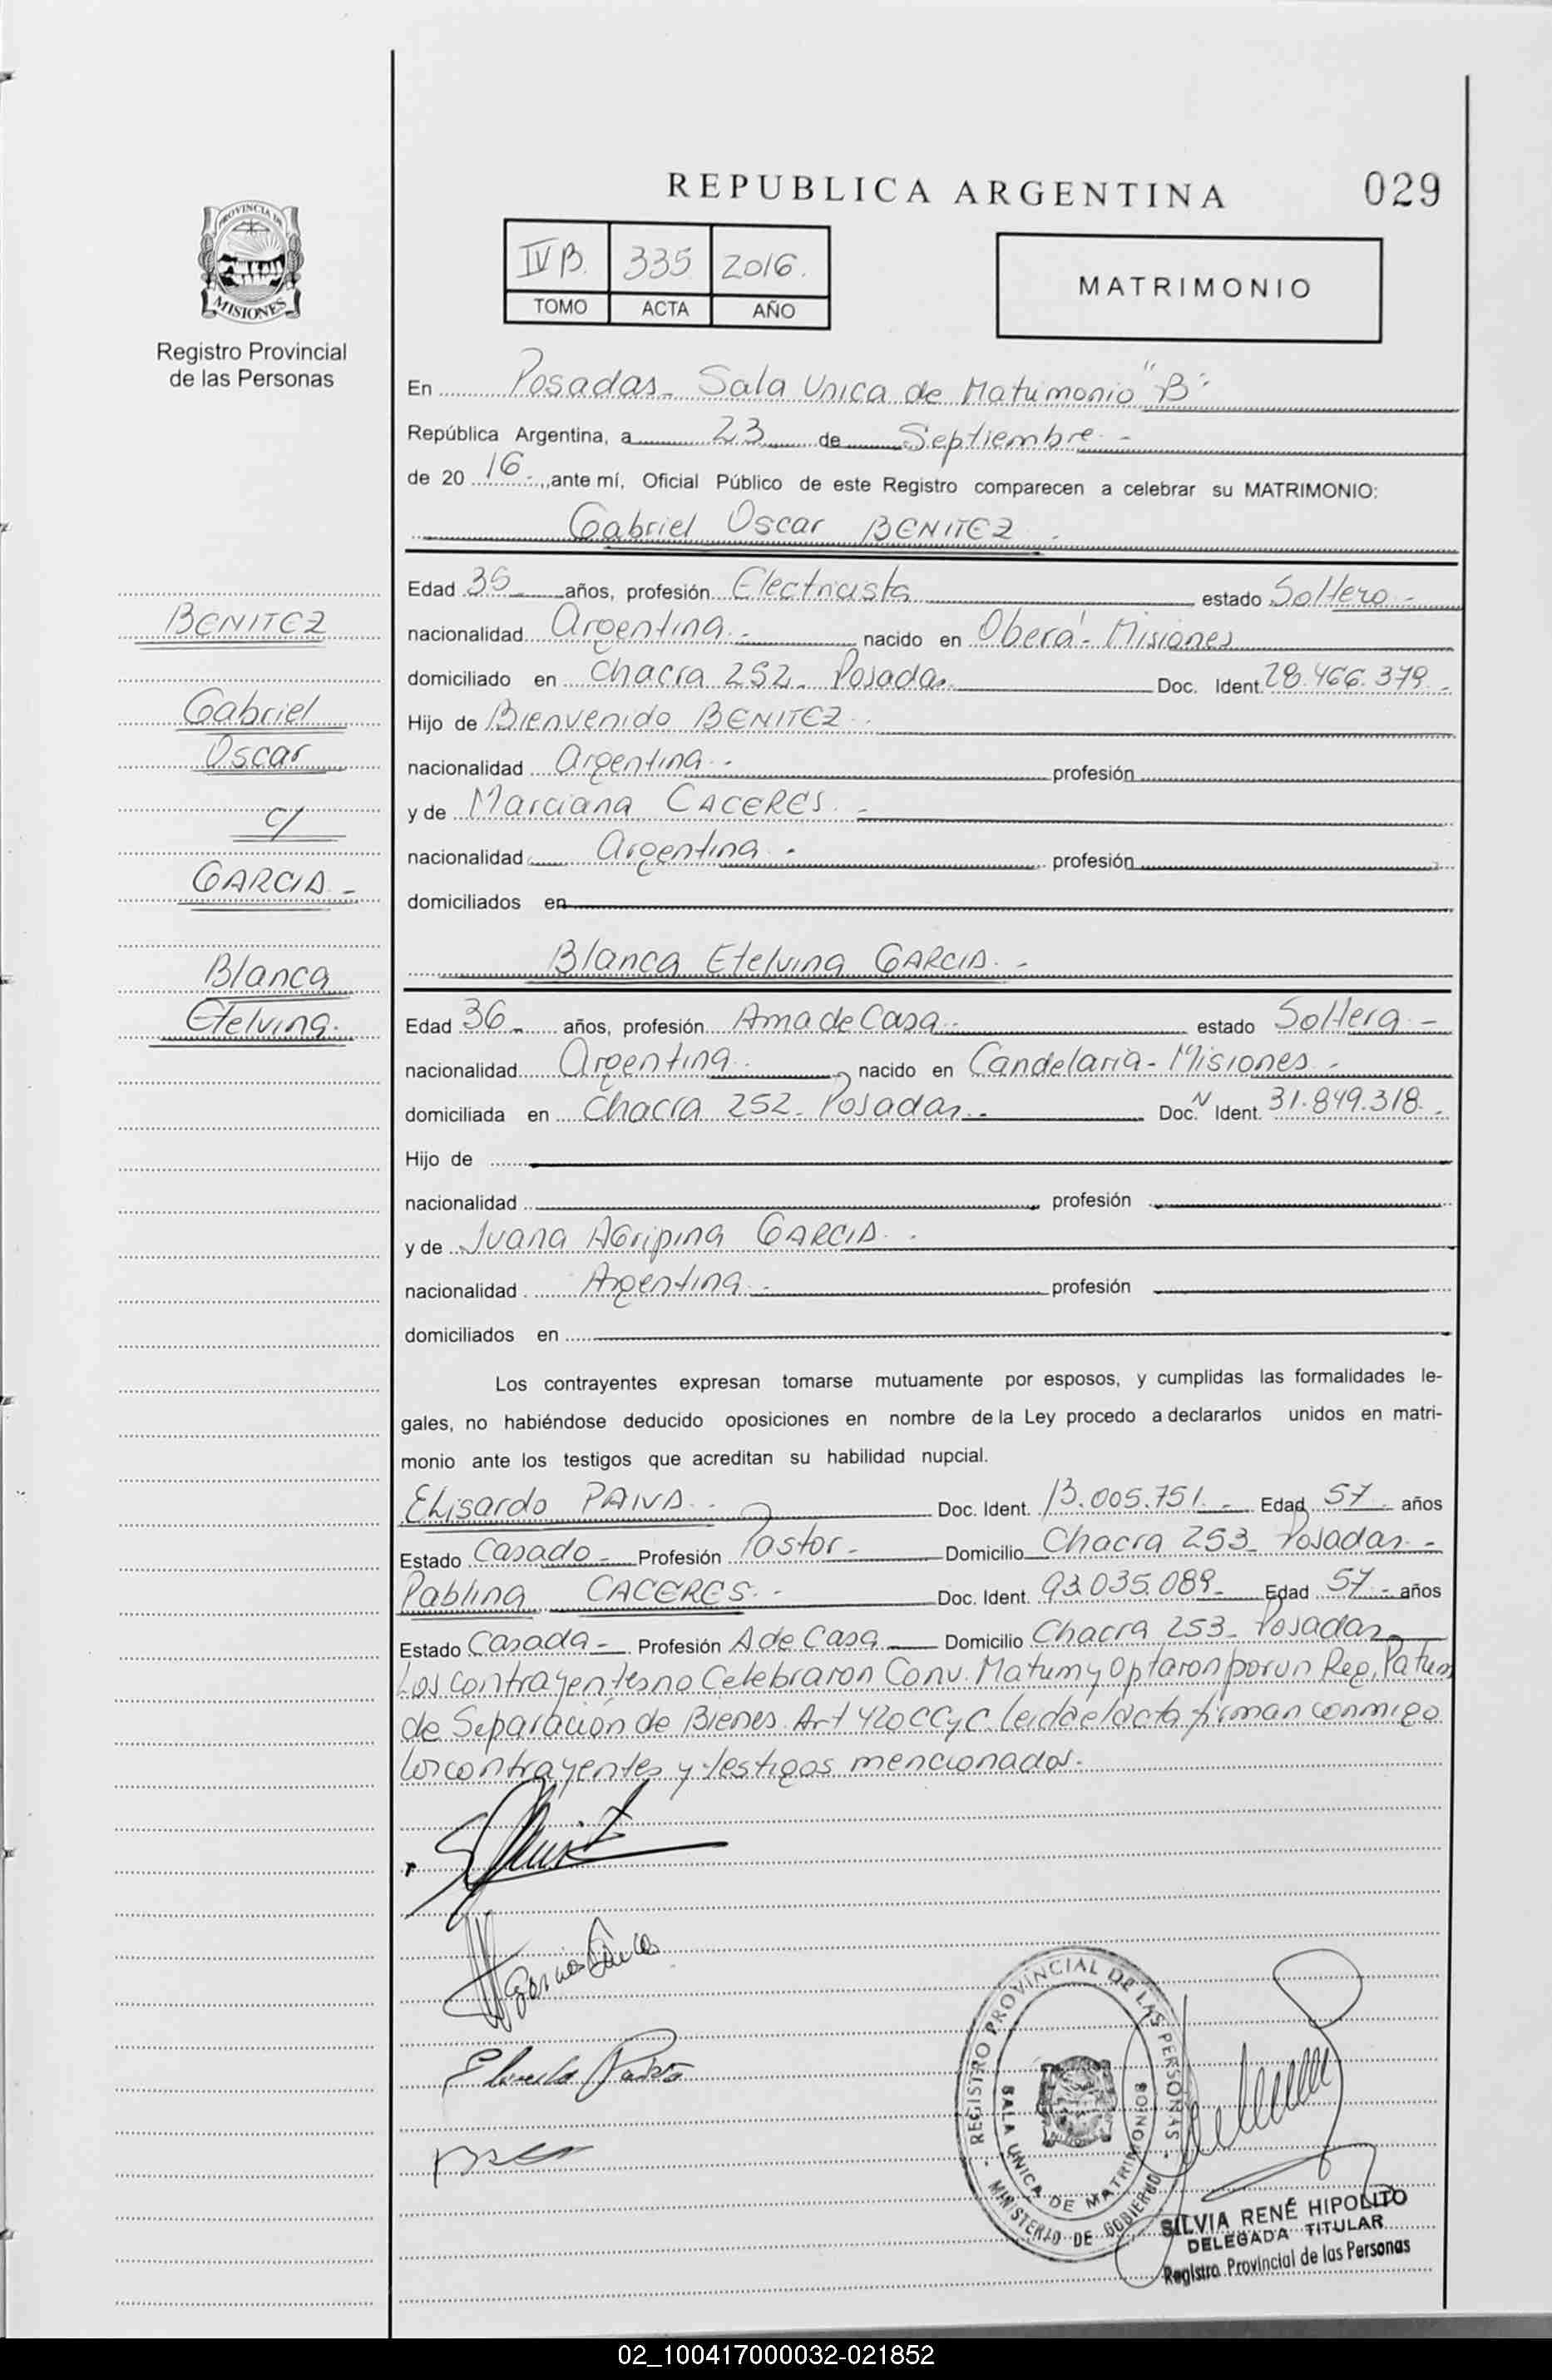 REPUBLICA ARGENTINA
029
PROVINCIA DE
MISIONES
Registro Provincial
de las Personas
IV B. 335 2016.
TOMO ACTA AÑO
MATRIMONIO
En Posadas - Sala Unica de Matrimonio "B"
República Argentina, a 23 de Septiembre -
de 20 16 -, ante mí, Oficial Público de este Registro comparecen a celebrar su MATRIMONIO:
Gabriel Oscar BENITEZ
Edad 35 años, profesión Electricista estado Soltero -
BENITEZ
nacionalidad Argentina - nacido en Oberá - Misiones
domiciliado en Chacra 252 - Posadas Doc. Ident. 28.466.379 -
Gabriel
Hijo de Bienvenido BENITEZ
Oscar
nacionalidad Argentina - profesión
c/
y de Marciana CACERES -
nacionalidad Argentina - profesión
GARCIA -
domiciliados en
Blanca
Blanca Etelvina GARCIA -
Etelvina.
Edad 36 - años, profesión Ama de Casa - estado Soltera -
nacionalidad Argentina nacido en Candelaria - Misiones -
domiciliada en Chacra 252 - Posadas - Doc. N Ident. 31.849.318 -
Hijo de
nacionalidad profesión
y de Juana AGripina GARCIA.
nacionalidad Argentina - profesión
domiciliados en
Los contrayentes expresan tomarse mutuamente por esposos, y cumplidas las formalidades le-
gales, no habiéndose deducido oposiciones en nombre de la Ley procedo a declararlos unidos en matri-
monio ante los testigos que acreditan su habilidad nupcial.
Elisardo PAIVA. Doc. Ident. 13.005.751 - Edad 57 años
Estado Casado - Profesión Pastor - Domicilio Chacra 253 - Posadas -
Pablina CACERES - Doc. Ident. 93.035.089 - Edad 57 - años
Estado Casada - Profesión A de Casa Domicilio Chacra 253 - Posadas
Los contrayentes no Celebraron Conv. Matrim y Optaron por un Reg. Patrim
de Separación de Bienes. Art 420 CCyC. leida el acta firman conmigo
los contrayentes y testigos mencionados.
REGISTRO PROVINCIAL DE LAS PERSONAS
SALA UNICA DE MATRIMONIOS
MINISTERIO DE GOBIERNO
SILVIA RENÉ HIPOLITO
DELEGADA TITULAR
Registro Provincial de las Personas
02_100417000032-021852